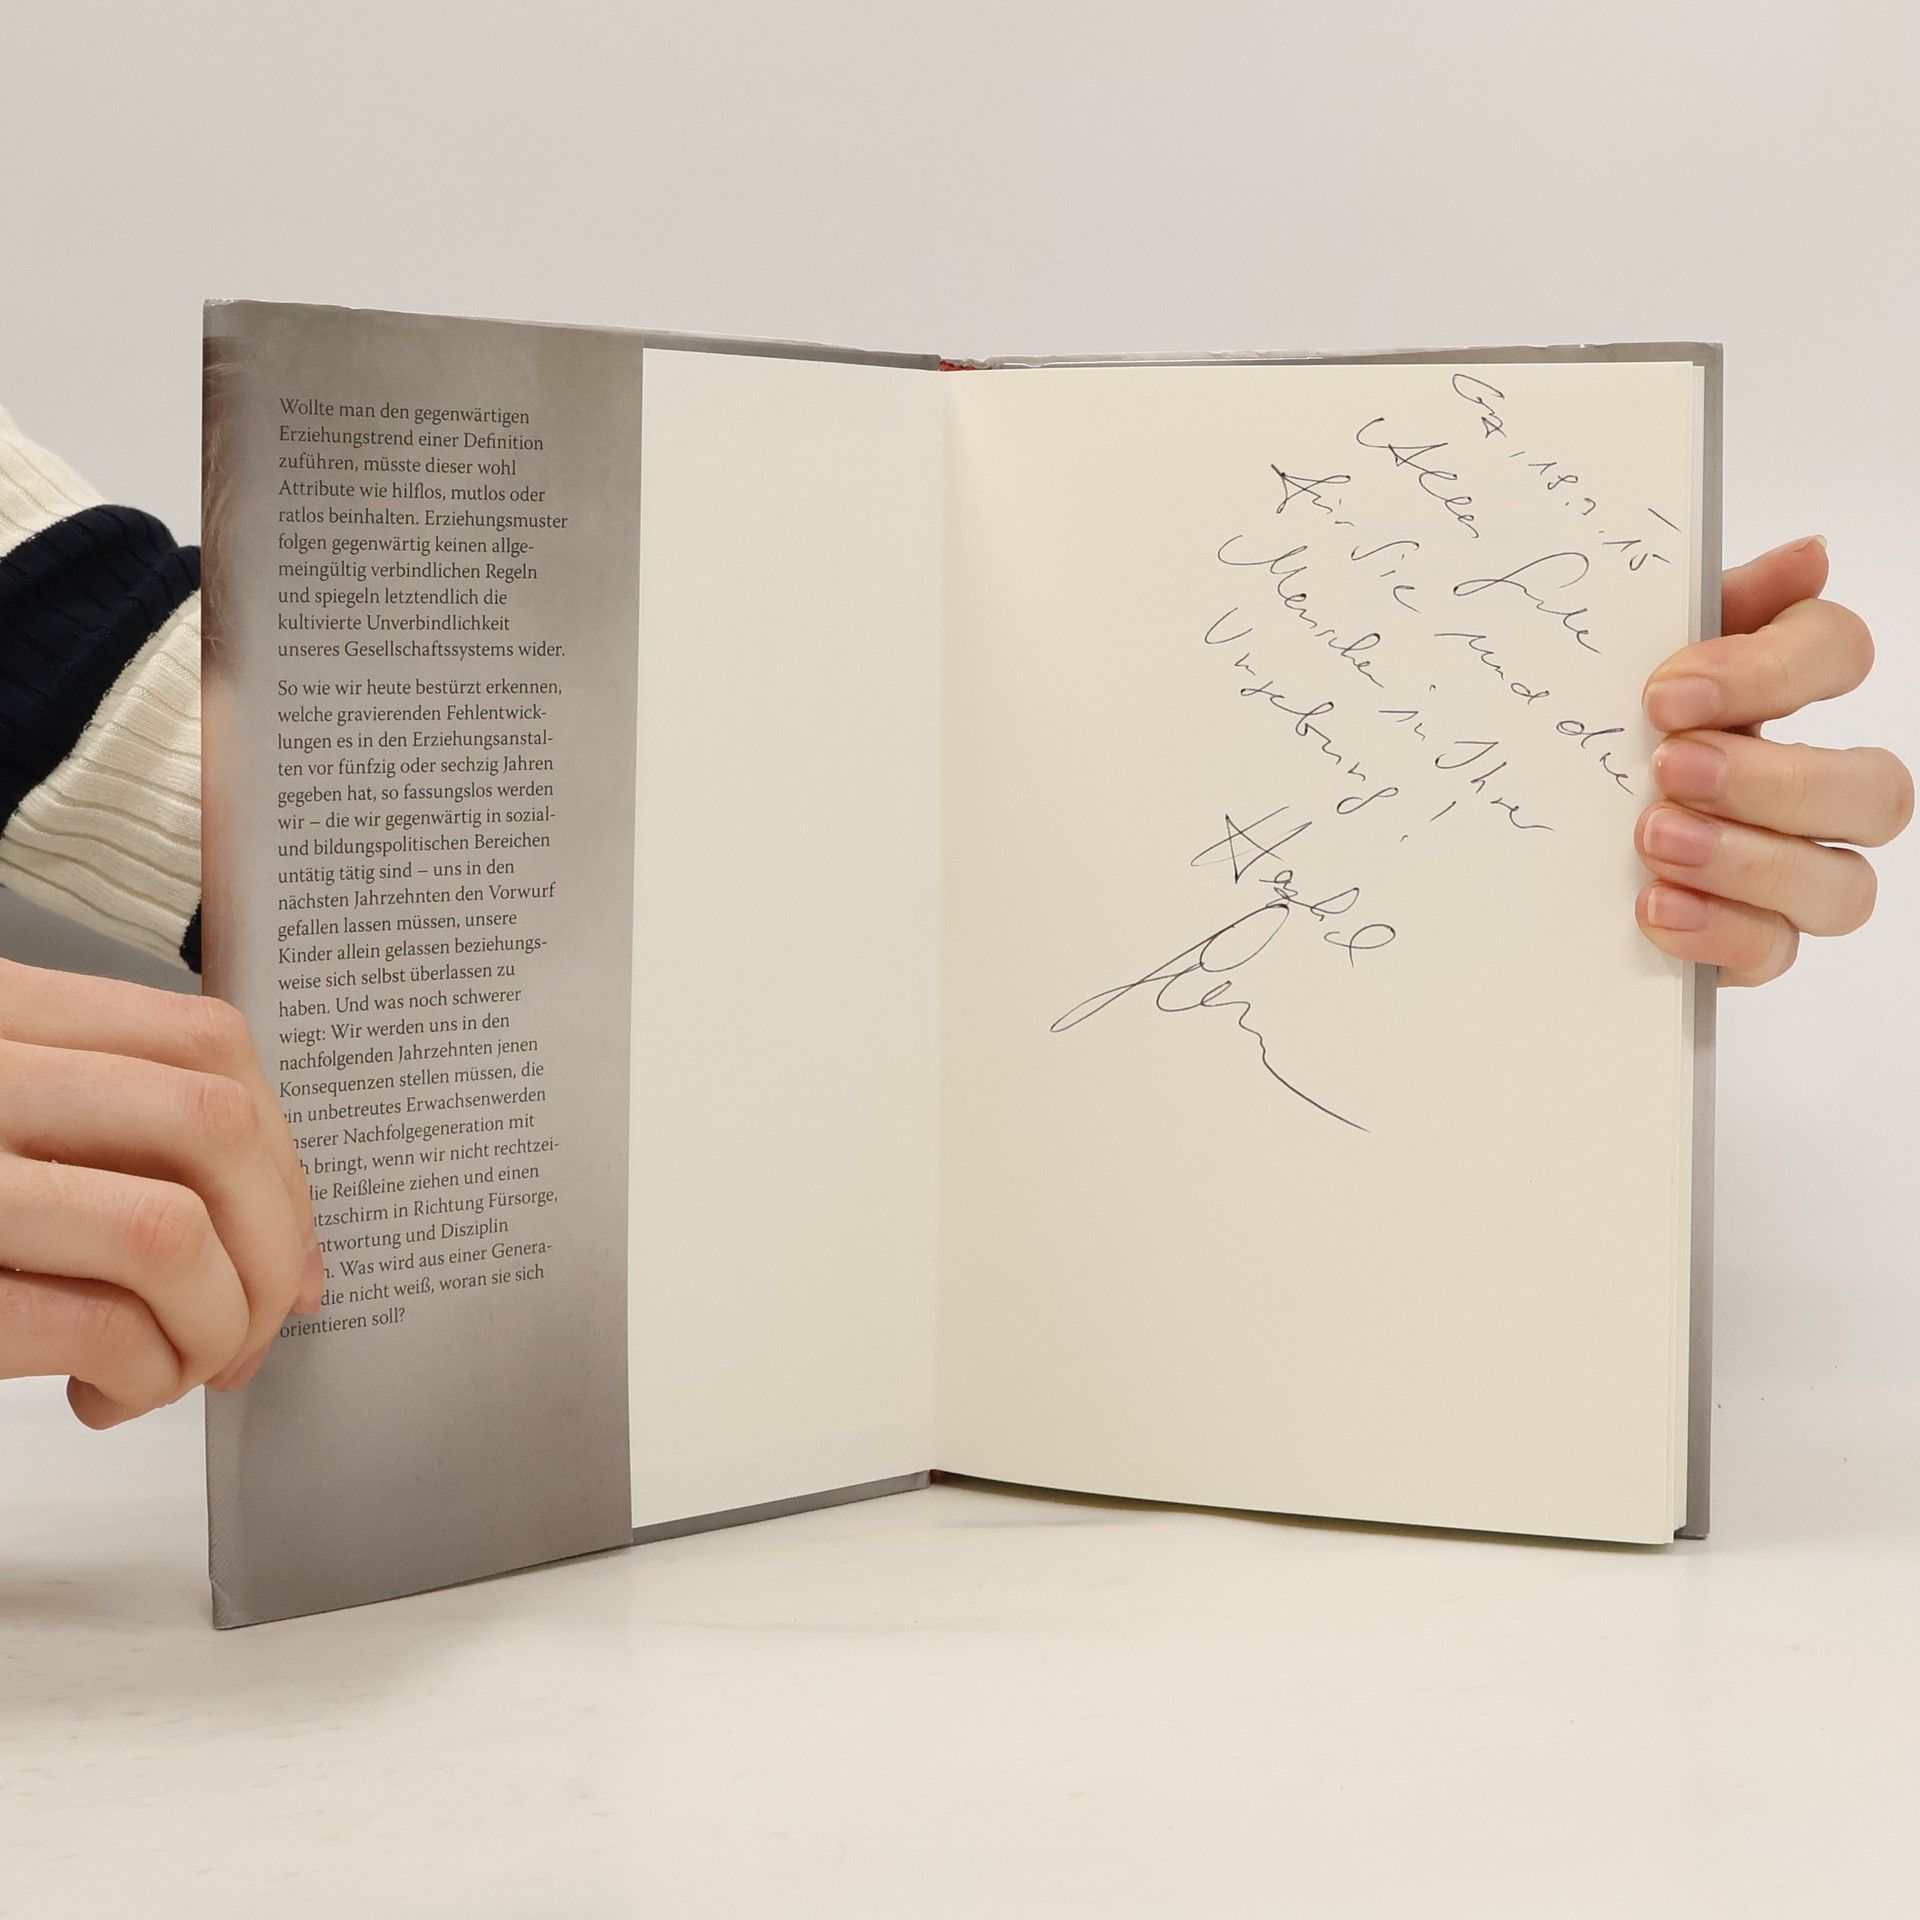 Wollte man den gegenwärtigen
Erziehungstrend einer Definition
zuführen, müsste dieser wohl
Attribute wie hilflos, mutlos oder
ratlos beinhalten. Erziehungsmuster
folgen gegenwärtig keinen allge-
meingültig verbindlichen Regeln
und spiegeln letztendlich die
kultivierte Unverbindlichkeit
unseres Gesellschaftssystems wider.
So wie wir heute bestürzt erkennen,
welche gravierenden Fehlentwick-
lungen es in den Erziehungsanstal-
ten vor fünfzig oder sechzig Jahren
gegeben hat, so fassungslos werden
wir – die wir gegenwärtig in sozial-
und bildungspolitischen Bereichen
untätig tätig sind – uns in den
nächsten Jahrzehnten den Vorwurf
gefallen lassen müssen, unsere
Kinder allein gelassen beziehungs-
weise sich selbst überlassen zu
haben. Und was noch schwerer
wiegt: Wir werden uns in den
nachfolgenden Jahrzehnten jenen
Konsequenzen stellen müssen, die
ein unbetreutes Erwachsenwerden
nserer Nachfolgegeneration mit
h bringt, wenn wir nicht rechtzei-
lie Reißleine ziehen und einen
tzschirm in Richtung Fürsorge,
ntwortung und Disziplin
n. Was wird aus einer Genera-
die nicht weiß, woran sie sich
orientieren soll?
Alles Gute
für Sie und die
Menschen in Ihrer
Umgebung!